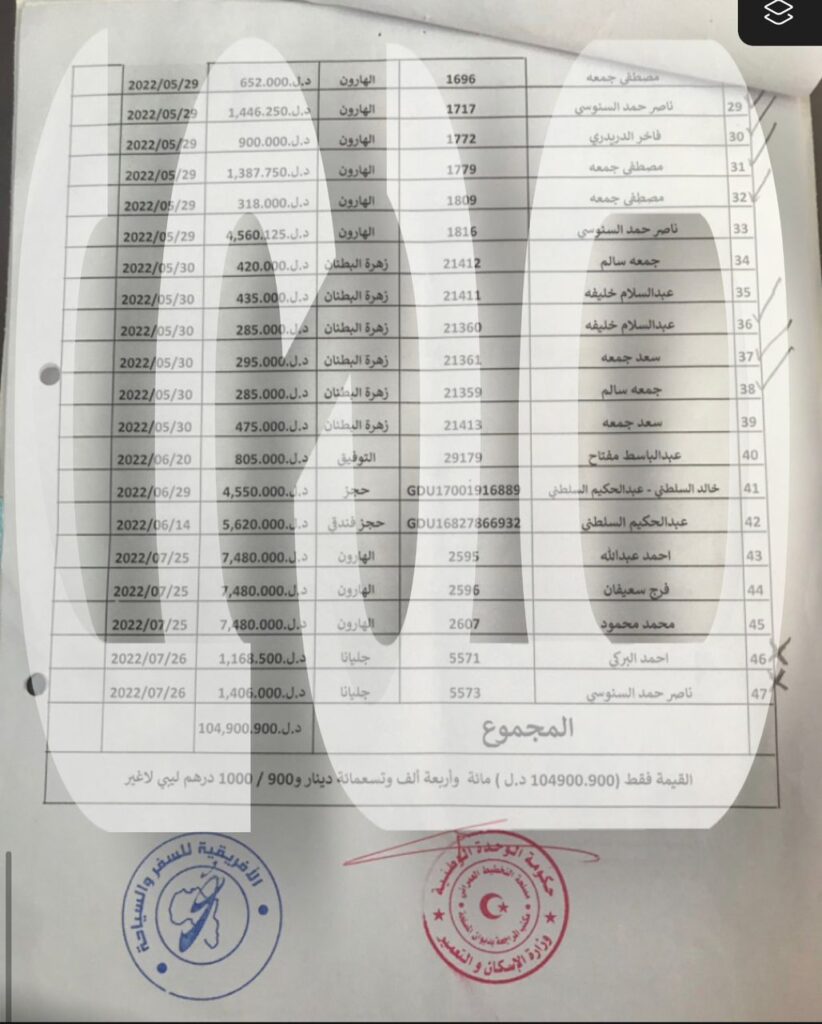 مصطفى جمعه 1696 الهارون د.ل.652.000 2022/05/29
29 ناصر حمد السنوسي 1717 الهارون د.ل.1,446.250 2022/05/29
30 فاخر الدريدري 1772 الهارون د.ل.900.000 2022/05/29
31 مصطفى جمعه 1779 الهارون د.ل.1,387.750 2022/05/29
32 مصطفى جمعه 1809 الهارون د.ل.318.000 2022/05/29
33 ناصر حمد السنوسي 1816 الهارون د.ل.4,560.125 2022/05/29
34 جمعه سالم 21412 زهرة البطنان د.ل.420.000 2022/05/30
35 عبدالسلام خليفه 21411 زهرة البطنان د.ل.435.000 2022/05/30
36 عبدالسلام خليفه 21360 زهرة البطنان د.ل.285.000 2022/05/30
37 سعد جمعه 21361 زهرة البطنان د.ل.295.000 2022/05/30
38 جمعه سالم 21359 زهرة البطنان د.ل.285.000 2022/05/30
39 سعد جمعه 21413 زهرة البطنان د.ل.475.000 2022/05/30
40 عبدالباسط مفتاح 29179 التوفيق د.ل.805.000 2022/06/20
41 خالد السلطني - عبدالحكيم السلطني GDU17001916889 حجز د.ل.4,550.000 2022/06/29
42 عبدالحكيم السلطني GDU16827866932 حجز فندقي د.ل.5,620.000 2022/06/14
43 احمد عبدالله 2595 الهارون د.ل.7,480.000 2022/07/25
44 فرج سعيفان 2596 الهارون د.ل.7,480.000 2022/07/25
45 محمد محمود 2607 الهارون د.ل.7,480.000 2022/07/25
46 احمد البركي 5571 جليانا د.ل.1,168.500 2022/07/26
47 ناصر حمد السنوسي 5573 جليانا د.ل.1,406.000 2022/07/26
المجموع د.ل.104,900.900
القيمة فقط (104900.900 د.ل ) مائة وأربعة ألف وتسعمائة دينار و900 / 1000 درهم ليبي لاغير
الأفريقية للسفر والسياحة
حكومة الوحدة الوطنية
وزارة الإسكان و التعمير
مصلحة التخطيط العمراني